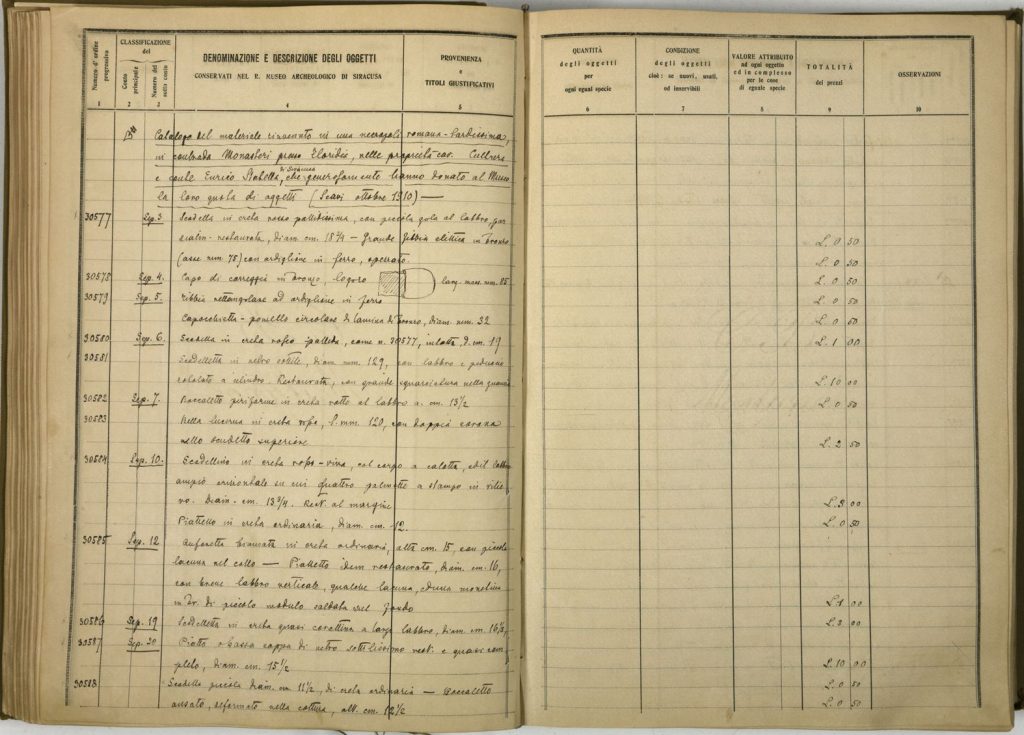 Numero d'ordine progressivo
CLASSIFICAZIONE
del
Conto principale
Numero del sotto conto
DENOMINAZIONE E DESCRIZIONE DEGLI OGGETTI
CONSERVATI NEL R. MUSEO ARCHEOLOGICO DI SIRACUSA
PROVENIENZA
e
TITOLI GIUSTIFICATIVI
1 2 3 4 5
Catalogo del materiale rinvenuto in una necropoli romana-tardissima,
in contrada Monasteri presso Floridia, nelle proprietà cav. Cultrera
e Enrico di Siracusa, che generosamente hanno donato al Museo
la loro quota di oggetti (Scavi ottobre 1910) —
30577 Sep. 3. Scodella in creta rosso pallidissima, con piccola gola al labbro, par
restaurata, diam. cm. 18 3/4 — Grande fibbia elittica in bronzo
(asse mm. 75) con ardiglione in ferro, operato.
30578 Sep. 4. Capo di correggia in bronzo, logoro mm. 85
30579 Sep. 5. Fibbia rettangolare ad ardiglione in ferro
Capocchietta - pomello circolare di lamina di bronzo, diam. mm. 32
30580 Sep. 6. Scodella in creta rosso pallida, come n. 30577, intatta, d. cm. 19
30581 Scodelletta in vetro sottile, diam. mm. 129, con labbro e peduncolo
a cilindro. Restaurata, con grande squarciatura nella
30582 Sep. 7. Boccaletto piriforme in creta rotto al labbro a. cm. 13 1/2
30583 Bella lucerna in creta rossa, l. mm. 120, con doppia corona
nello scudetto superiore
30584 Sep. 10. Scodellino in creta rosso-viva, col corpo a calotta, ed il labbro
ampio orizzontale su cui quattro palmette a stampo in rilie
vo. Diam. cm. 13 3/4. Rest. al margine
Piattello in creta ordinaria, diam. cm. 12.
30585 Sep. 12 Anforetta biansata in creta ordinaria, alta cm. 15, con piccola
lacuna nel collo — Piattetto idem restaurato, diam. cm. 16,
con breve labbro verticale, qualche lacuna, ed una monetina
in br. di piccolo modulo saldata sul fondo
30586 Sep. 19 Scodelletta in creta quasi corallina a largo labbro, diam. cm. 16 1/2,
30587 Sep. 20 Piatto o bassa coppa di vetro sottilissimo rest. e quasi com
pleto, diam. cm. 15 1/2
30588 Scodella piccola diam. cm. 11 1/2, di creta ordinaria — Boccaletto
ansato, deformato nella cottura, alt. cm. 12 1/2
QUANTITÀ
degli oggetti
per
ogni egual specie
CONDIZIONE
degli oggetti
cioè: se nuovi, usati,
od inservibili
VALORE ATTRIBUITO
ad ogni oggetto
ed in complesso
per le cose
di eguale specie
TOTALITÀ
dei prezzi
OSSERVAZIONI
6 7 8 9 10
L. 0 50
L. 0 50
L. 0 50
L. 0 50
L. 0 50
L. 1 00
L. 10 00
L. 0 50
L. 2 50
L. 3 00
L. 0 50
L. 1 00
L. 2 00
L. 10 00
L. 0 50
L. 0 50